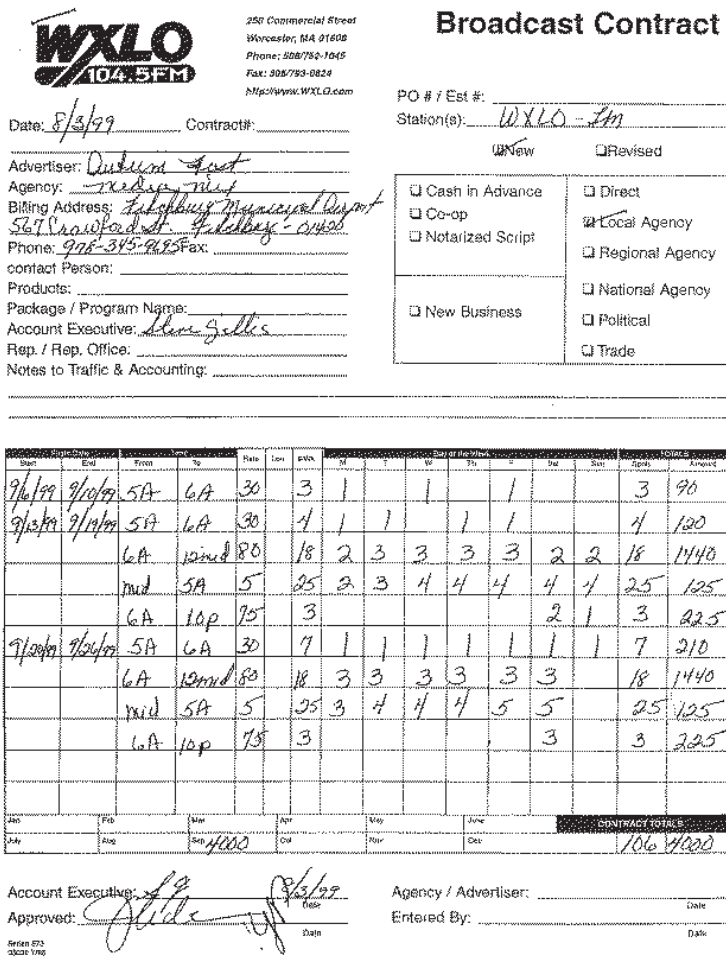 WXLO
104.5FM
250 Commercial Street
Worcester, MA 01608
Phone: 508/752-1045
Fax: 508/793-0824
http://www.WXLO.com
Broadcast Contract
PO # / Est #:
Station(s): WXLO - Fm
Date: 8/3/99 Contract#:
New Revised
Advertiser:
Agency: media mix
Billing Address: Fitchburg Municipal Airport
567 Crawford St. Fitchburg - 01420
Phone: 978-345-9695 Fax:
contact Person:
Products:
Package / Program Name:
Account Executive: Steve Gillis
Rep. / Rep. Office:
Notes to Traffic & Accounting:
Cash in Advance
Co-op
Notarized Script
New Business
Direct
Local Agency
Regional Agency
National Agency
Political
Trade
Start End From To Rate Len M T W Th F Sat Sun Spots Amount
Day of the Week TOTALS
9/6/99 9/10/99 5A 6A 30 3 1 1 1 3 90
9/13/99 9/19/99 5A 6A 30 4 1 1 1 1 4 120
6A 12mid 80 18 2 3 3 3 3 2 2 18 1440
mid 5A 5 25 2 3 4 4 4 4 4 25 125
6A 10p 75 3 2 1 3 225
9/20/99 9/26/99 5A 6A 30 7 1 1 1 1 1 1 1 7 210
6A 12mid 80 18 3 3 3 3 3 3 18 1440
mid 5A 5 25 3 4 4 4 5 5 25 125
6A 10p 75 3 3 3 225
Jan Feb Mar Apr May June CONTRACT TOTALS
July Aug Sep 4000 Oct Nov Dec 106 4000
Account Executive: SG 8/3/99
Date
Agency / Advertiser:
Date
Approved:
Date
Entered By:
Date